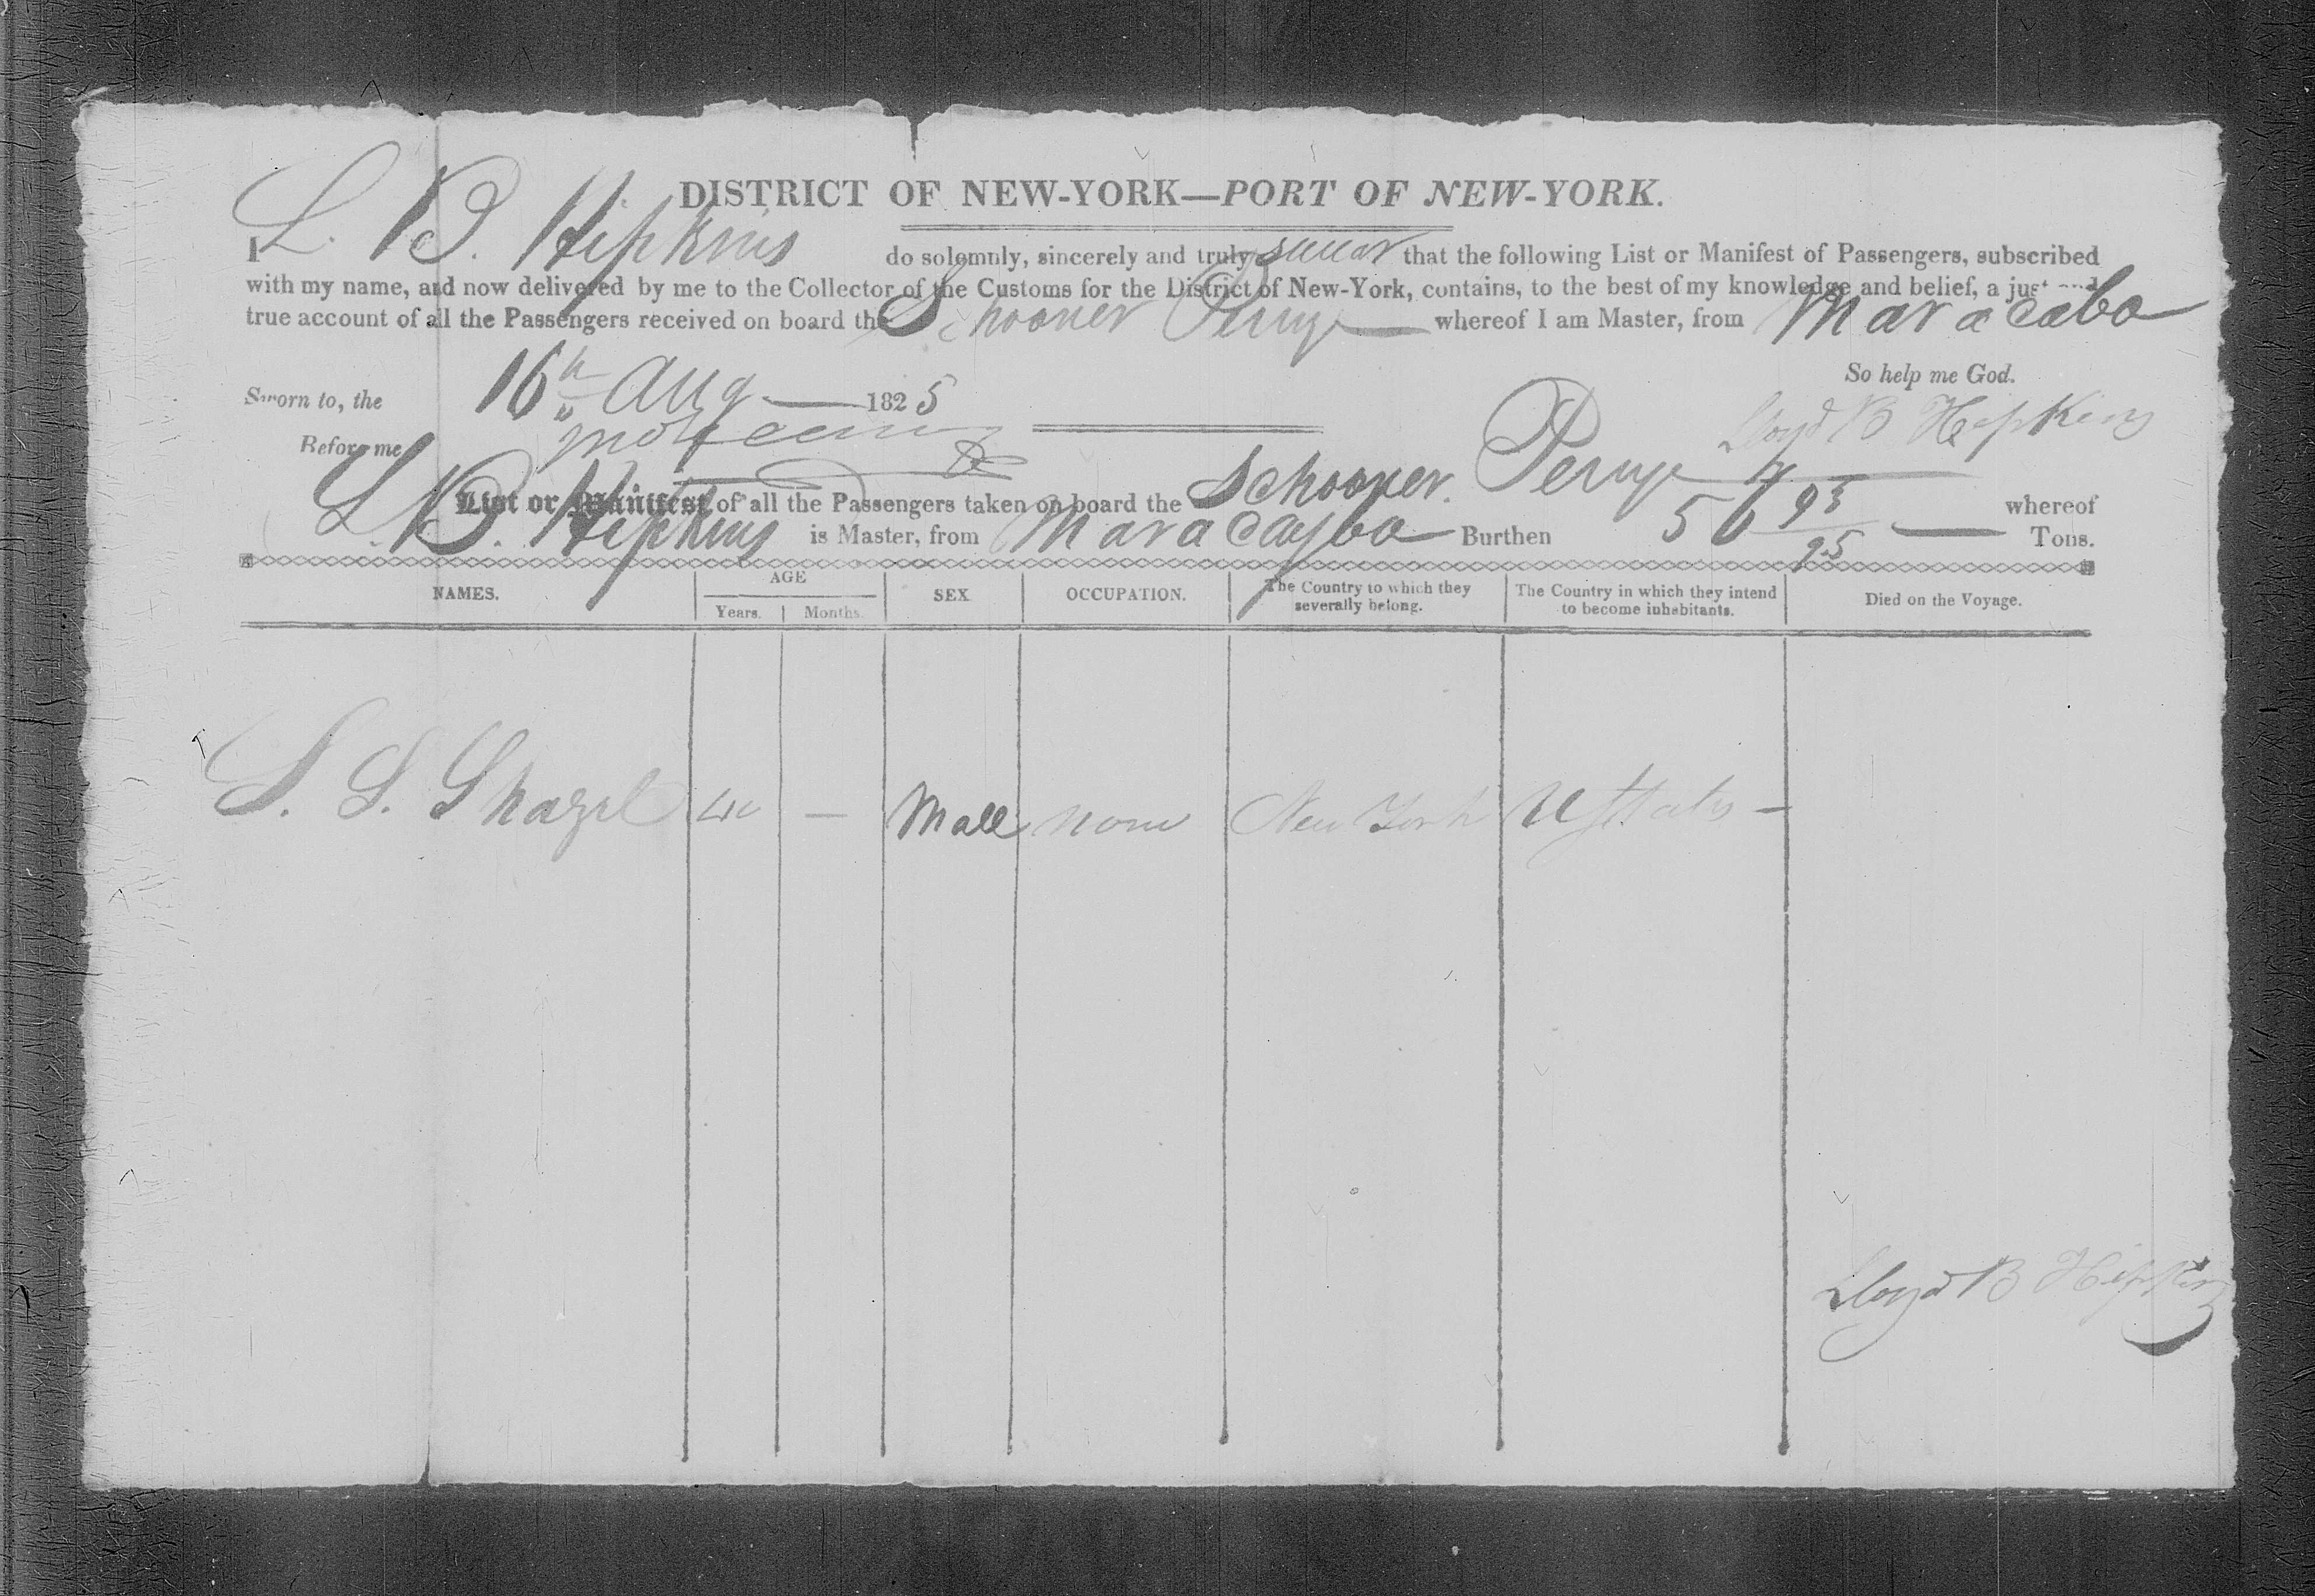 DISTRICT OF NEW-YORK—PORT OF NEW-YORK.
I L. B. Hipkins do solemnly, sincerely and truly swear that the following List or Manifest of Passengers, subscribed
with my name, and now delivered by me to the Collector of the Customs for the District of New-York, contains, to the best of my knowledge and belief, a just and
true account of all the Passengers received on board the Schooner whereof I am Master, from Maracabo
So help me God.
Sworn to, the 16th Aug 1825
Lloyd B Hipkins
Before me
List or Manifest of all the Passengers taken on board the Schooner. whereof
L. B. Hipkins is Master, from Maracaybo Burthen 56 93/95 Tons.
NAMES. AGE Years. Months. SEX OCCUPATION. The Country to which they severally belong. The Country in which they intend to become inhabitants. Died on the Voyage.
Male none New York UStates -
Lloyd B Hipkins